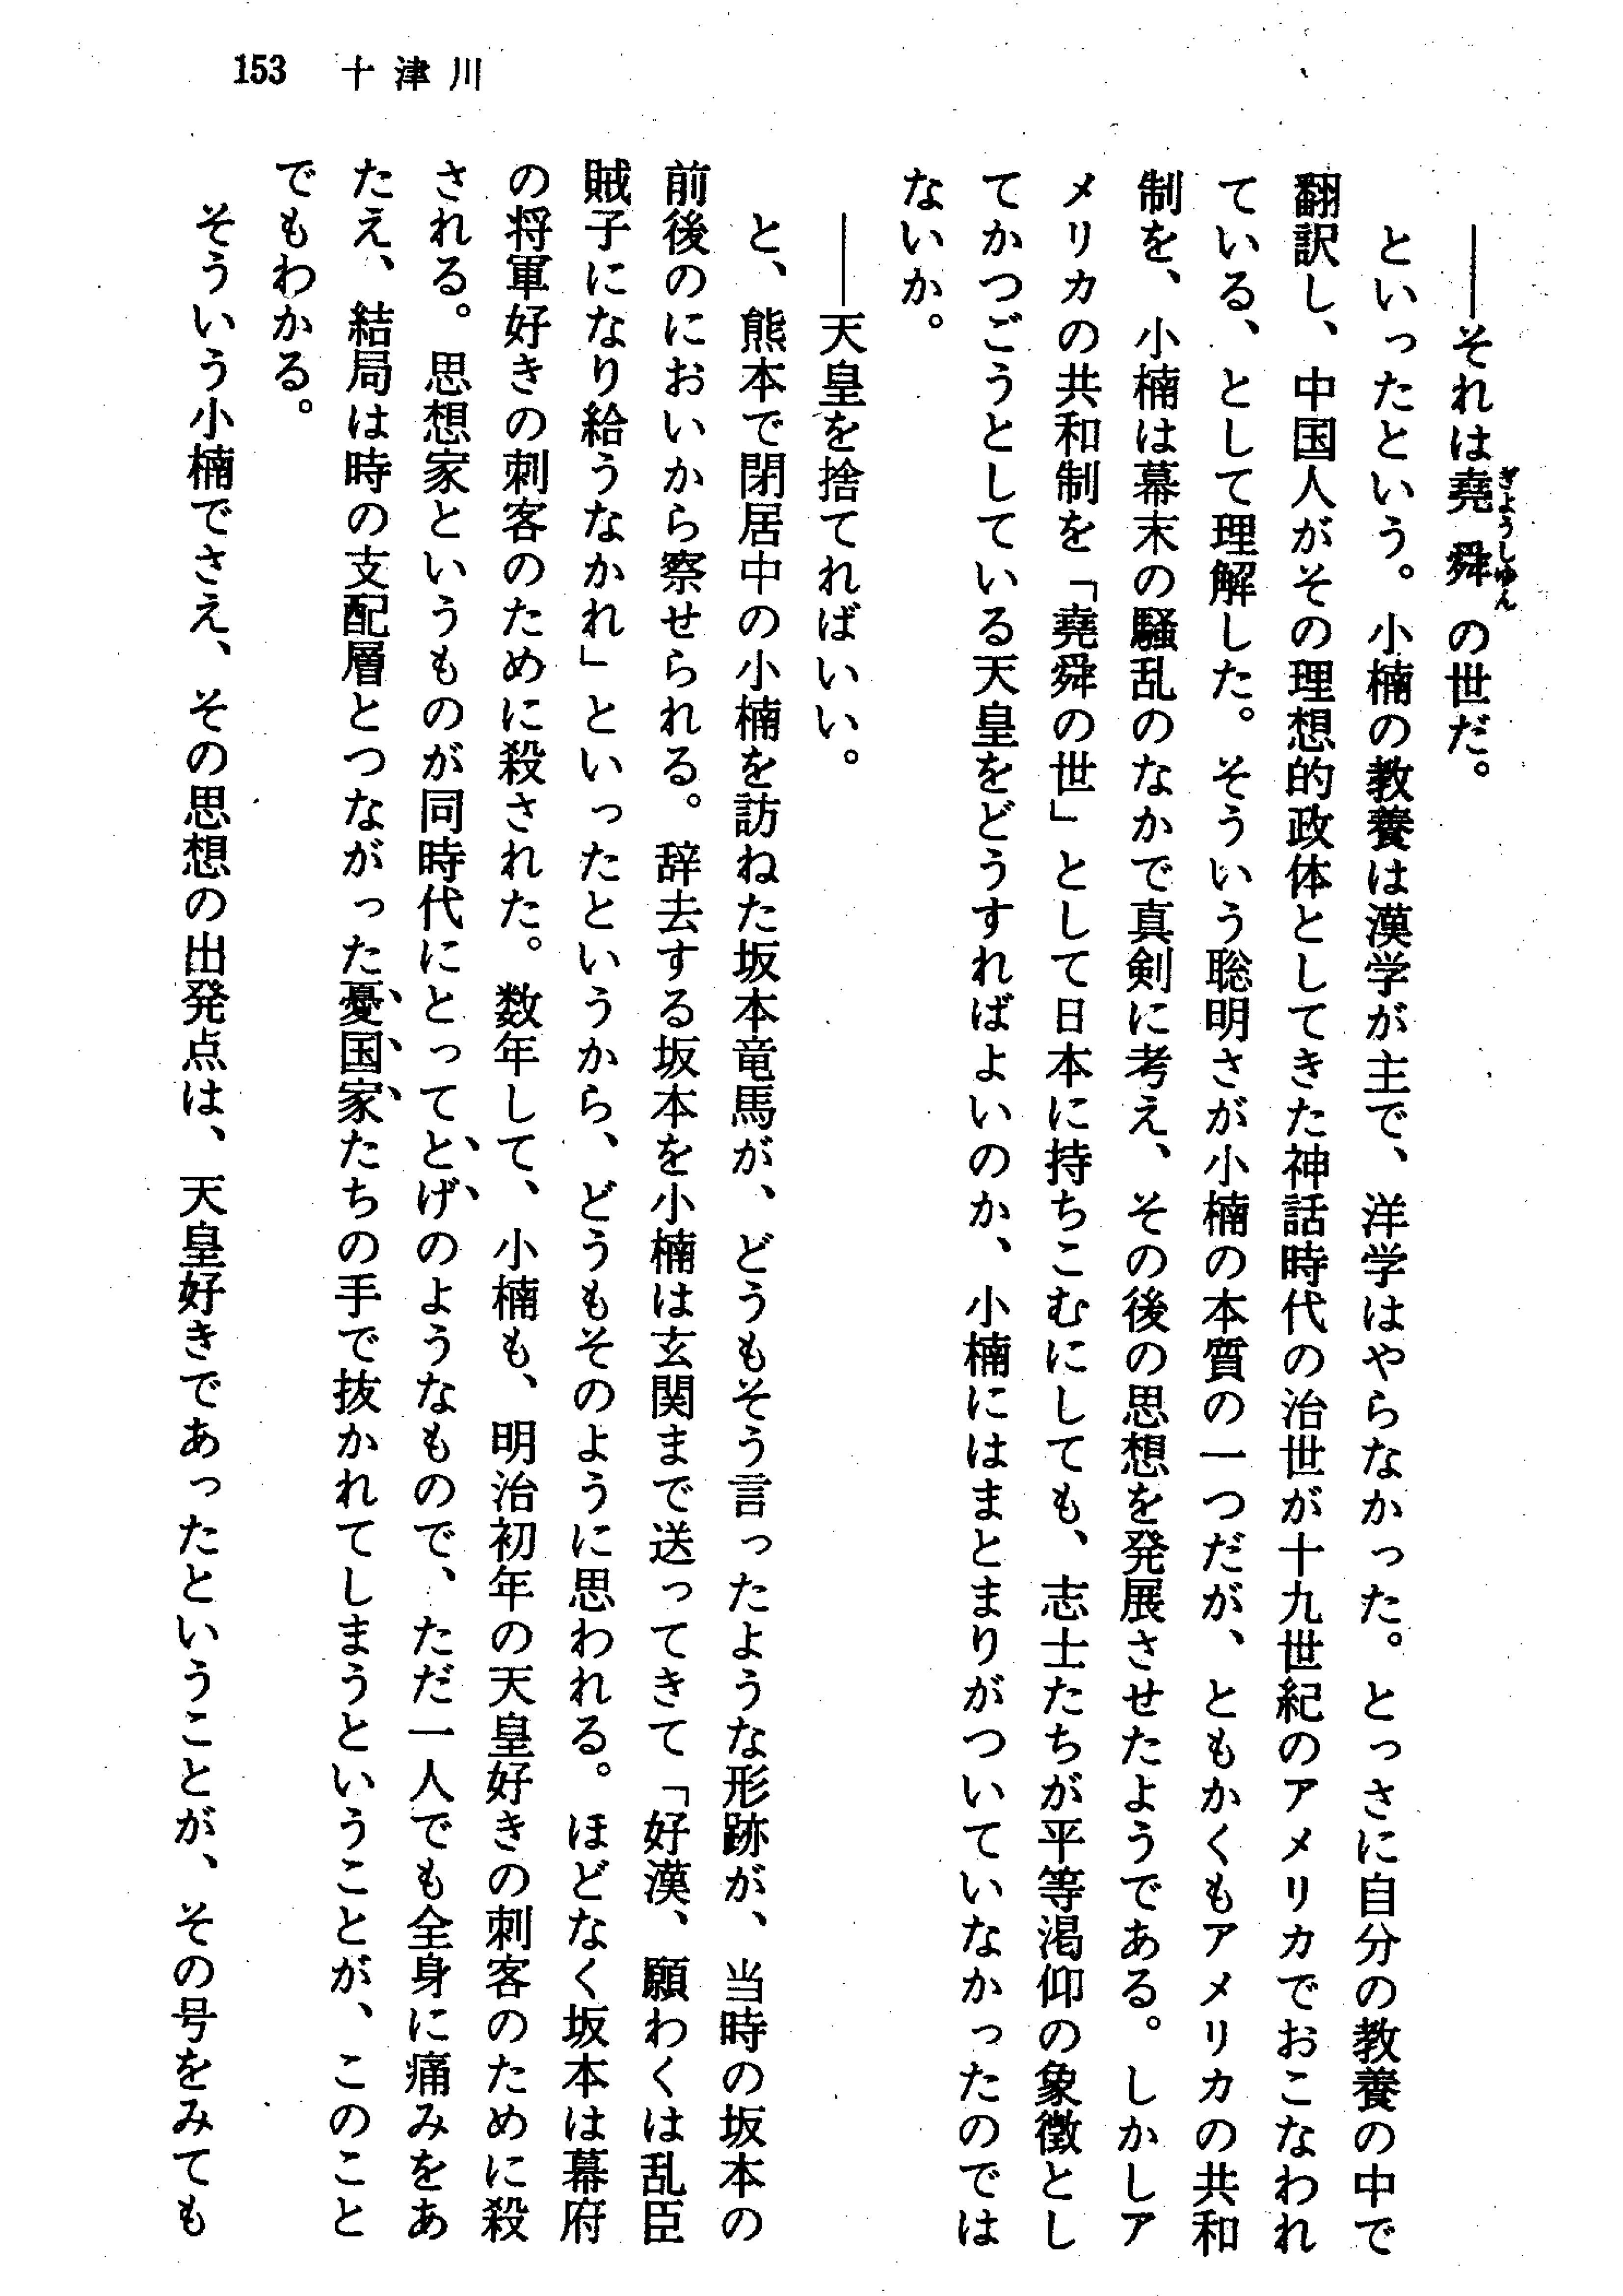 153　十津川
――それは堯舜の世だ。
ぎようしゆん
といったという。小楠の教養は漢学が主で、洋学はやらなかった。とっさに自分の教養の中で
翻訳し、中国人がその理想的政体としてきた神話時代の治世が十九世紀のアメリカでおこなわれ
ている、として理解した。そういう聡明さが小楠の本質の一つだが、ともかくもアメリカの共和
制を、小楠は幕末の騒乱のなかで真剣に考え、その後の思想を発展させたようである。しかしア
メリカの共和制を「堯舜の世」として日本に持ちこむにしても、志士たちが平等渇仰の象徴とし
てかつごうとしている天皇をどうすればよいのか、小楠にはまとまりがついていなかったのでは
ないか。
――天皇を捨てればいい。
と、熊本で閉居中の小楠を訪ねた坂本竜馬が、どうもそう言ったような形跡が、当時の坂本の
前後のにおいから察せられる。辞去する坂本を小楠は玄関まで送ってきて「好漢、願わくは乱臣
賊子になり給うなかれ」といったというから、どうもそのように思われる。ほどなく坂本は幕府
の将軍好きの刺客のために殺された。数年して、小楠も、明治初年の天皇好きの刺客のために殺
される。思想家というものが同時代にとってとげのようなもので、ただ一人でも全身に痛みをあ
たえ、結局は時の支配層とつながった憂国家たちの手で抜かれてしまうということが、このこと
でもわかる。
そういう小楠でさえ、その思想の出発点は、天皇好きであったということが、その号をみても